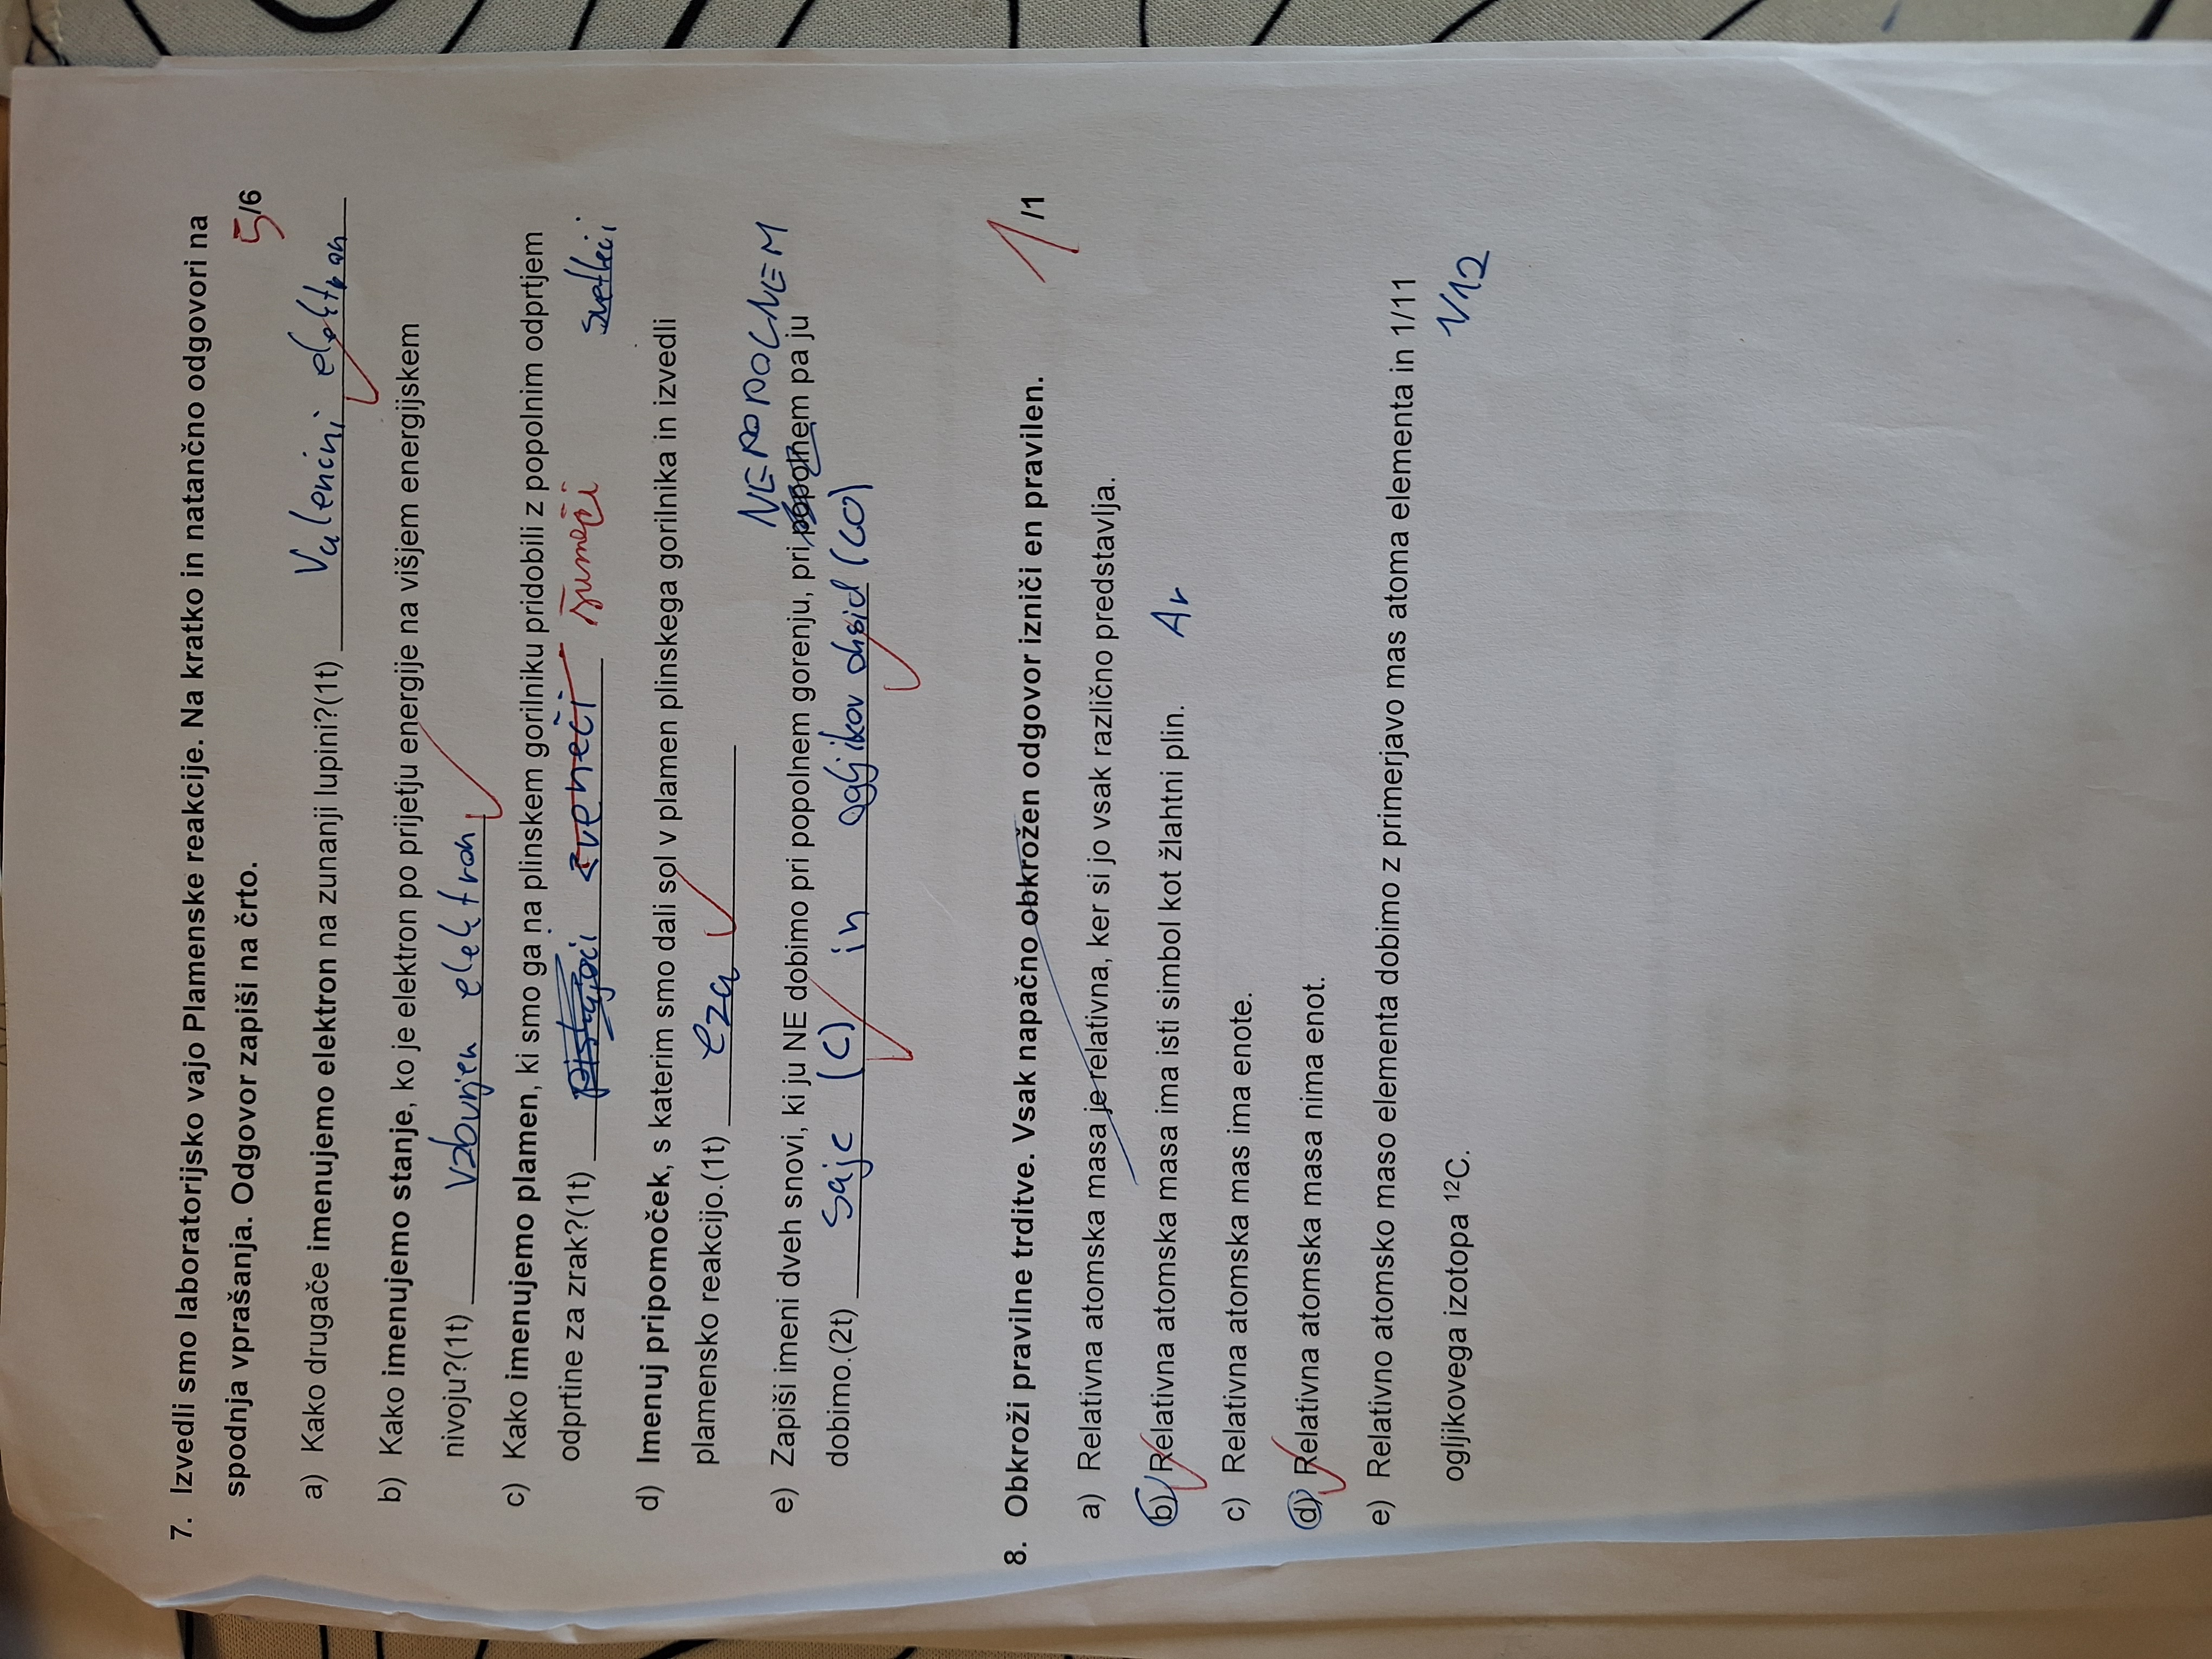 7. Izvedli smo laboratorijsko vajo Plamenske reakcije. Na kratko in natančno odgovori na
spodnja vprašanja. Odgovor zapiši na črto.
5/6
a) Kako drugače imenujemo elektron na zunanji lupini?(1t) Valencni elektron
b) Kako imenujemo stanje, ko je elektron po prijetju energije na višjem energijskem
nivoju?(1t) vzburjen elektron
c) Kako imenujemo plamen, ki smo ga na plinskem gorilniku pridobili z popolnim odprtjem
odprtine za zrak?(1t) zveneči šumeči svetleči
d) Imenuj pripomoček, s katerim smo dali sol v plamen plinskega gorilnika in izvedli
plamensko reakcijo.(1t) eza
NEPOPOLNEM
e) Zapiši imeni dveh snovi, ki ju NE dobimo pri popolnem gorenju, pri popolnem pa ju
dobimo.(2t) saje (C) in ogljikov oksid (CO)
8. Obkroži pravilne trditve. Vsak napačno obkrožen odgovor izniči en pravilen. 1/1
a) Relativna atomska masa je relativna, ker si jo vsak različno predstavlja.
b) Relativna atomska masa ima isti simbol kot žlahtni plin. Ar
c) Relativna atomska mas ima enote.
d) Relativna atomska masa nima enot.
e) Relativno atomsko maso elementa dobimo z primerjavo mas atoma elementa in 1/11
ogljikovega izotopa ¹²C. 1/12